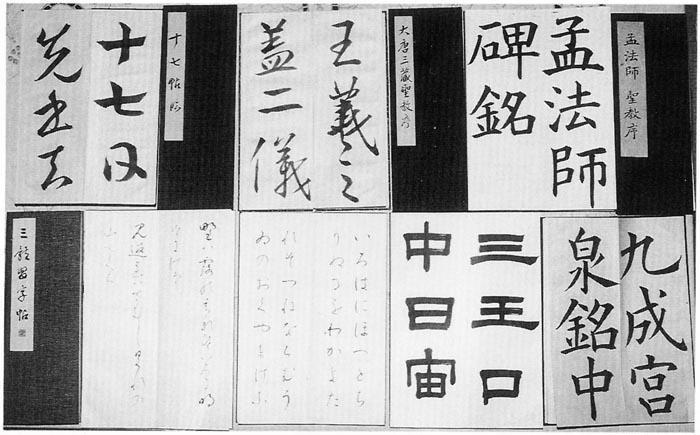 孟法師 聖教序
孟法師
碑銘
大唐三蔵聖教序
王羲之
蓋二儀
十七帖臨
十七日
先書
九成宮
泉銘中
三王口
中日宙
いろはにほへとち
りぬるをわかよた
れそつねならむう
ゐのおくやまけふ
三體習字帖